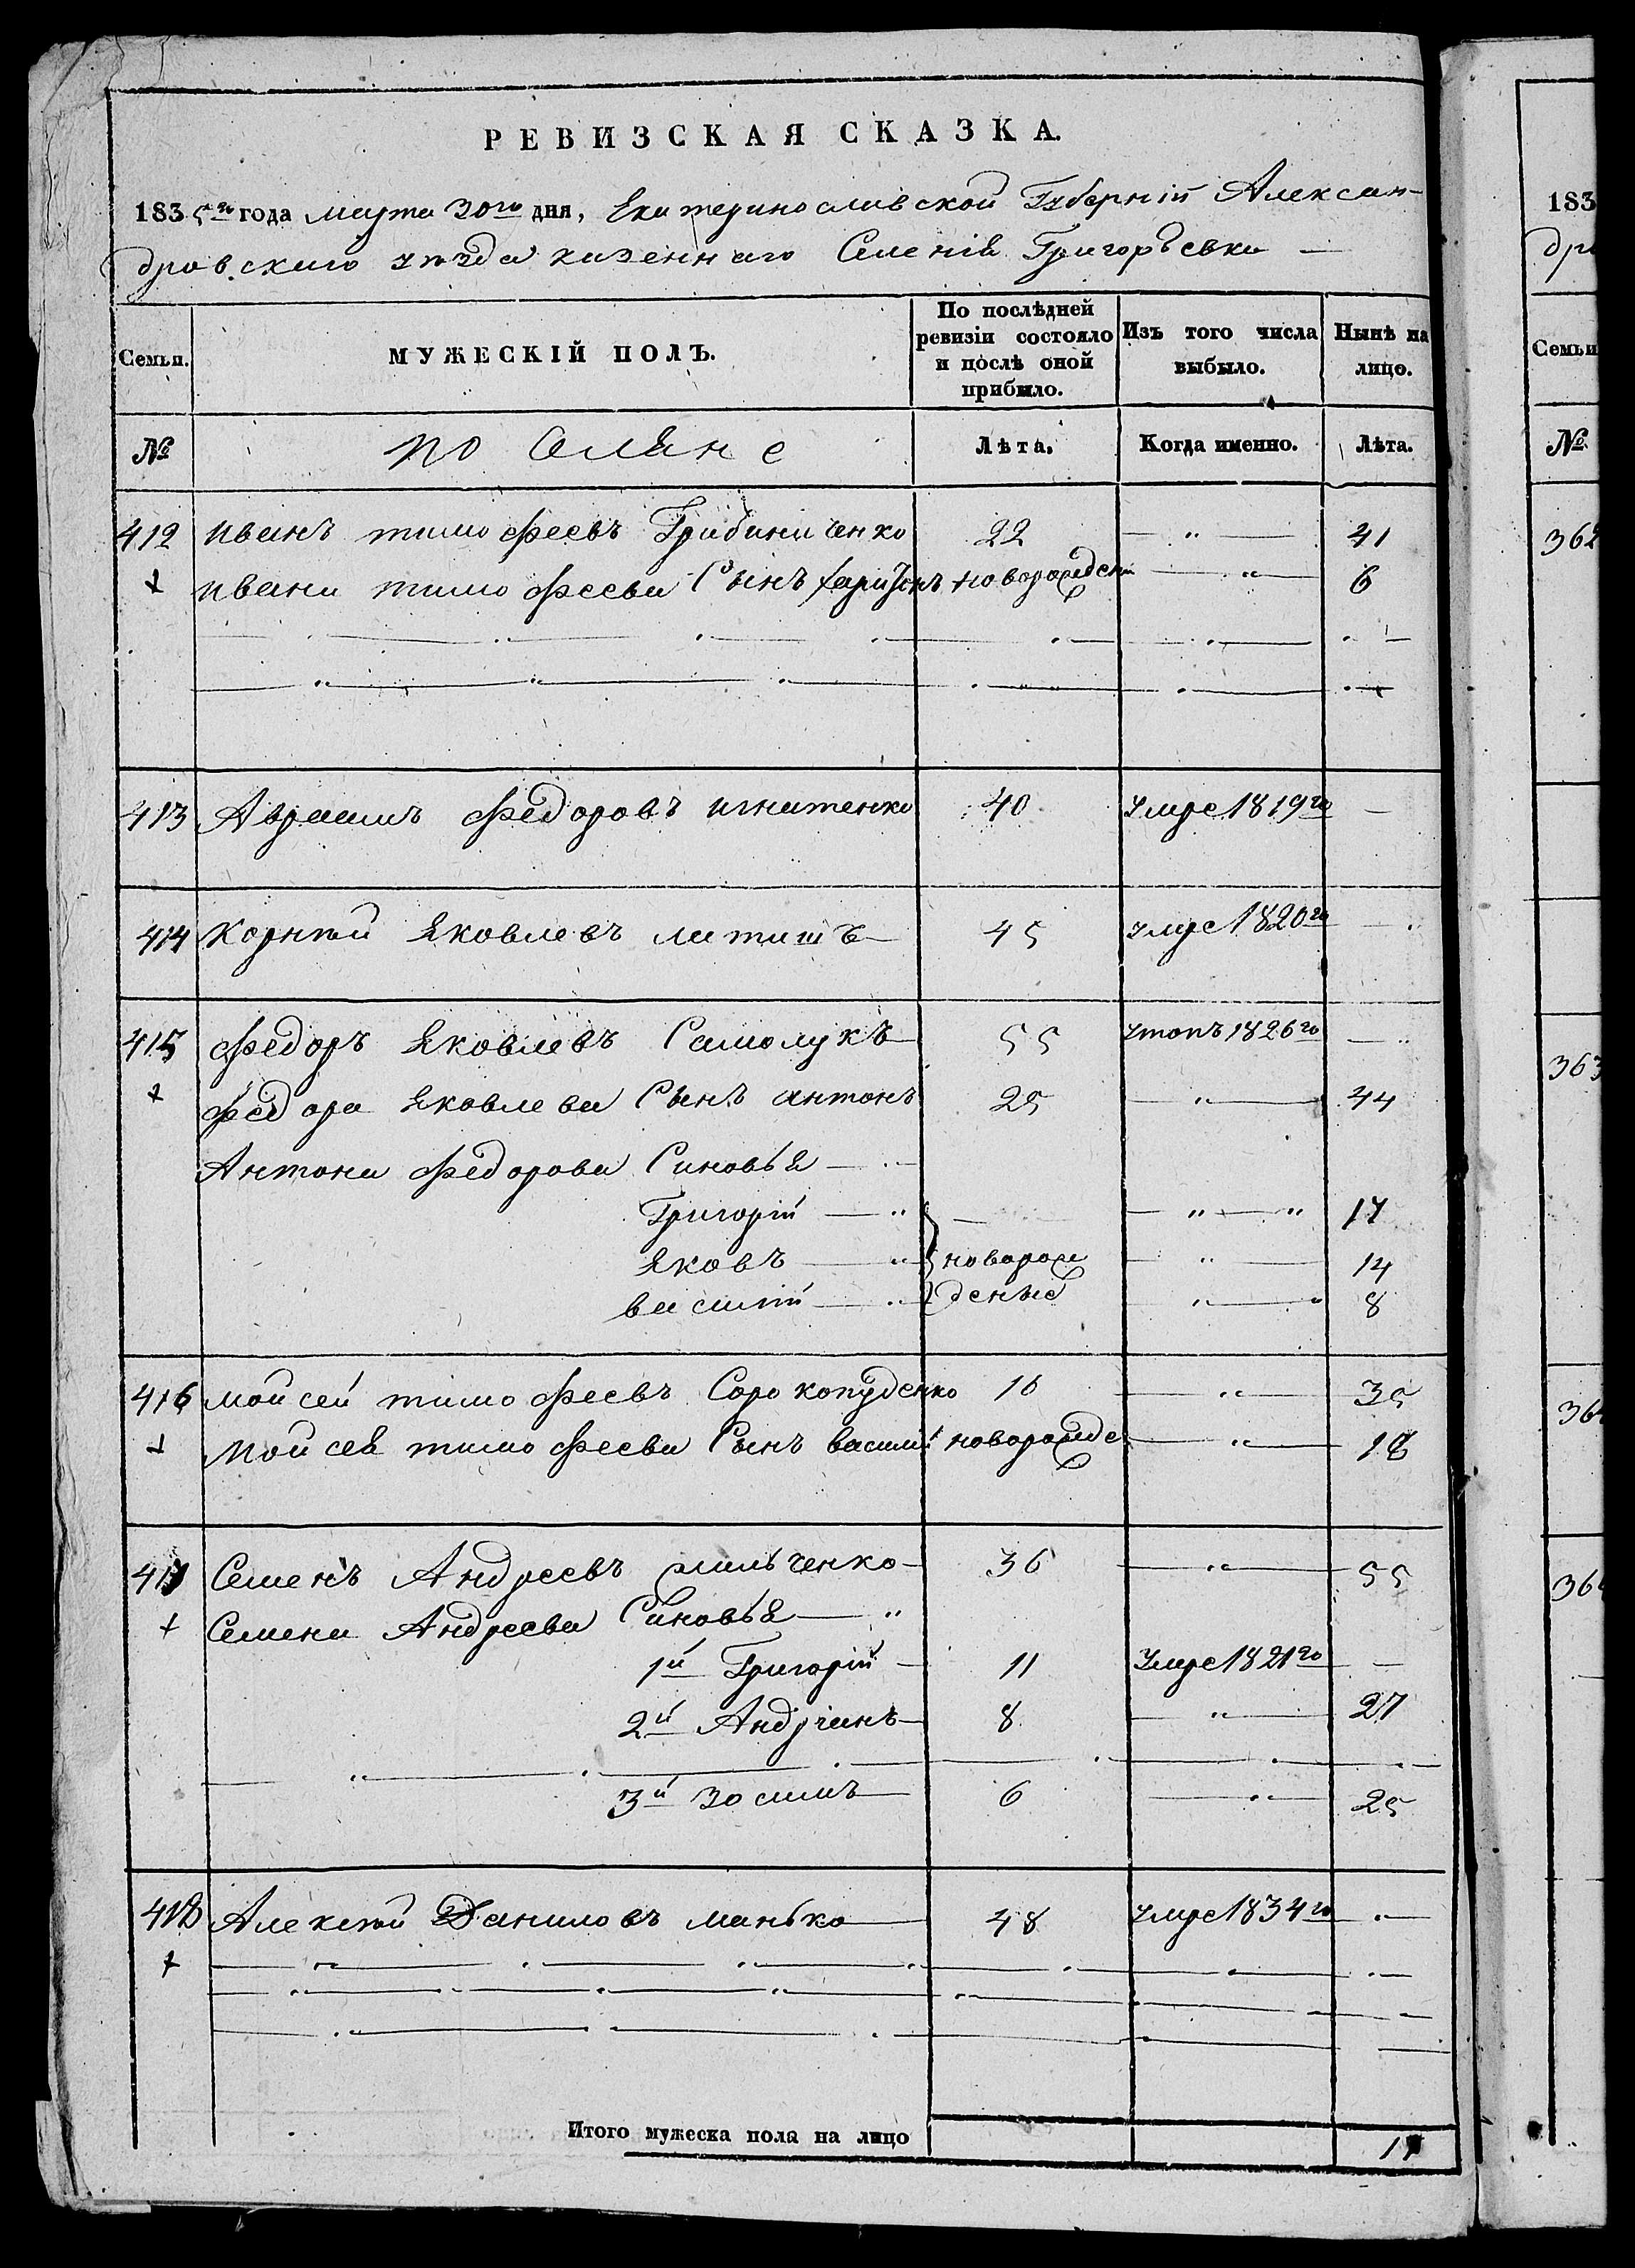 РЕВИЗСКАЯ СКАЗКА.
1835го года Марта 30го дня, Екатеринославской Губерній Алексан-
дровскаго уѣзда казеннаго Селенія Григорьевки
Семьи. МУЖЕСКІЙ ПОЛЪ. По послѣдней ревизіи состояло и послѣ оной прибыло. Изъ того числа выбыло. Нынѣ на лицо.
№ поселяне Лѣта. Когда именно. Лѣта.
412 иванъ тимофеевъ Грибиниченко 22 — " — 41
+ ивана тимофеева Сынъ харитонъ новорожден — " — 6
413 Аврамъ федоровъ игнатенко 40 умре 1819го —
414 Корнѣй Яковлевъ латишъ 45 умре 1820го —
415 федоръ Яковлевъ Самолукъ 55 утопъ 1826го —
+ федора Яковлева Сынъ антонъ 25 — " — 44
Антона федорова Синовья — "
Григорій — " — " — " 17
Яковъ — " новорож — " — 14
василій — " деные — " — 8
416 мойсей тимофеевъ Сорокопуденко 16 — " — 35
+ Мойсея тимофеева Сынъ василій новорожде — " — 18
417 Семенъ Андреевъ 36 — " — 55
+ Семена Андреева Синовья — "
1й Григорій — 11 умре 1821го —
2й Андріанъ — 8 — " — 27
3й Зосимъ 6 — " — 25
418 Алексѣй Даниловъ манько 48 умре 1834го —
+
Итого мужеска пола на лицо
183
дро
Семьи
№
362
363